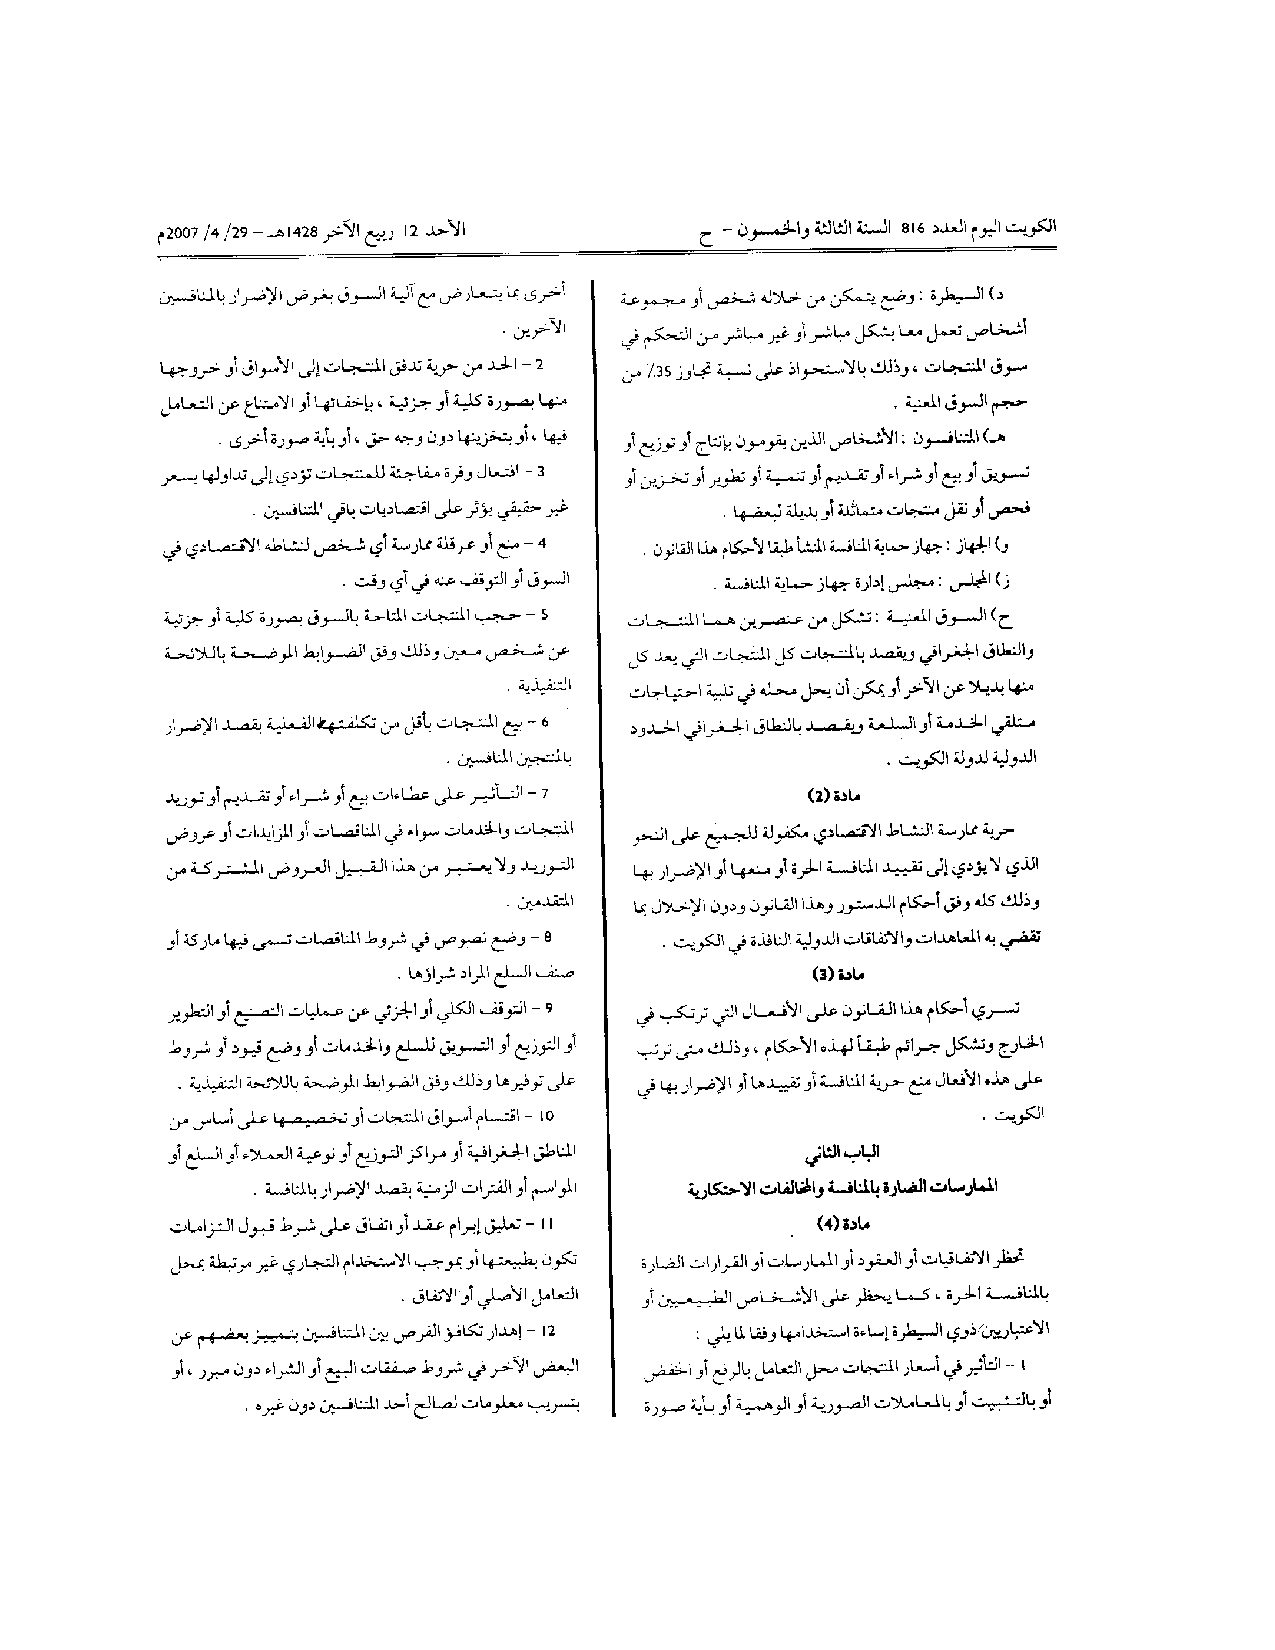 الكويت اليوم العدد 816 السنة الثالثة والخمسون - ح
الأحد 12 ربيع الآخر 1428هـ - 29/ 4/ 2007م
د) السيطرة : وضع يتمكن من خلاله شخص أو مجموعة
أشخاص تعمل معا بشكل مباشر أو غير مباشر من التحكم في
سوق المنتجات ، وذلك بالاستحواذ على نسبة تجاوز 35٪ من
حجم السوق المعنية .
هـ) المتنافسون : الأشخاص الذين يقومون بإنتاج أو توزيع أو
تسويق أو بيع أو شراء أو تقديم أو تنمية أو تطوير أو تخزين أو
فحص أو نقل منتجات متماثلة أو بديلة لبعضها .
و) الجهاز : جهاز حماية المنافسة المنشأ طبقا لأحكام هذا القانون .
ز) المجلس : مجلس إدارة جهاز حماية المنافسة .
ح) السوق المعنية : تشكل من عنصرين هما المنتجات
والنطاق الجغرافي ويقصد بالمنتجات كل المنتجات التي يعد كل
منها بديلا عن الآخر أو يمكن أن يحل محله في تلبية احتياجات
متلقي الخدمة أو السلعة ويقصد بالنطاق الجغرافي الحدود
الدولية لدولة الكويت .
مادة (2)
حرية ممارسة النشاط الاقتصادي مكفولة للجميع على النحو
الذي لا يؤدي إلى تقييد المنافسة الحرة أو منعها أو الإضرار بها
وذلك كله وفق أحكام الدستور وهذا القانون ودون الإخلال بما
تقضي به المعاهدات والاتفاقات الدولية النافذة في الكويت .
مادة (3)
تسري أحكام هذا القانون على الأفعال التي ترتكب في
الخارج وتشكل جرائم طبقاً لهذه الأحكام ، وذلك متى ترتب
على هذه الأفعال منع حرية المنافسة أو تقييدها أو الإضرار بها في
الكويت .
الباب الثاني
الممارسات الضارة بالمنافسة والمخالفات الاحتكارية
مادة (4)
تحظر الاتفاقيات أو العقود أو الممارسات أو القرارات الضارة
بالمنافسة الحرة ، كما يحظر على الأشخاص الطبيعيين أو
الاعتباريين ذوي السيطرة إساءة استخدامها وفقا لما يلي :
1 - التأثير في أسعار المنتجات محل التعامل بالرفع أو الخفض
أو بالتثبيت أو بالمعاملات الصورية أو الوهمية أو بأية صورة
أخرى بما يتعارض مع آلية السوق بغرض الإضرار بالمنافسين
الآخرين .
2 - الحد من حرية تدفق المنتجات إلى الأسواق أو خروجها
منها بصورة كلية أو جزئية ، بإخفائها أو الامتناع عن التعامل
فيها ، أو بتخزينها دون وجه حق ، أو بأية صورة أخرى .
3 - افتعال وفرة مفاجئة للمنتجات تؤدي إلى تداولها بسعر
غير حقيقي يؤثر على اقتصاديات باقي المتنافسين .
4 - منع أو عرقلة ممارسة أي شخص لنشاطه الاقتصادي في
السوق أو التوقف عنه في أي وقت .
5 - حجب المنتجات المتاحة بالسوق بصورة كلية أو جزئية
عن شخص معين وذلك وفق الضوابط الموضحة باللائحة
التنفيذية .
6 - بيع المنتجات بأقل من تكلفتها الفعلية بقصد الإضرار
بالمنتجين المنافسين .
7 - التأثير على عطاءات بيع أو شراء أو تقديم أو توريد
المنتجات والخدمات سواء في المناقصات أو المزايدات أو عروض
التوريد ولا يعتبر من هذا القبيل العروض المشتركة من
المتقدمين .
8 - وضع نصوص في شروط المناقصات تسمى فيها ماركة أو
صنف السلع المراد شراؤها .
9 - التوقف الكلي أو الجزئي عن عمليات التصنيع أو التطوير
أو التوزيع أو التسويق للسلع والخدمات أو وضع قيود أو شروط
على توفيرها وذلك وفق الضوابط الموضحة باللائحة التنفيذية .
10 - اقتسام أسواق المنتجات أو تخصيصها على أساس من
المناطق الجغرافية أو مراكز التوزيع أو نوعية العملاء أو السلع أو
المواسم أو الفترات الزمنية بقصد الإضرار بالمنافسة .
11 - تعليق إبرام عقد أو اتفاق على شرط قبول التزامات
تكون بطبيعتها أو بموجب الاستخدام التجاري غير مرتبطة بمحل
التعامل الأصلي أو الاتفاق .
12 - إهدار تكافؤ الفرص بين المتنافسين بتمييز بعضهم عن
البعض الآخر في شروط صفقات البيع أو الشراء دون مبرر ، أو
بتسريب معلومات لصالح أحد المتنافسين دون غيره .